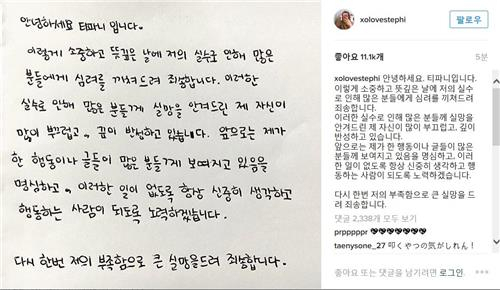 안녕하세요 티파니 입니다.
이렇게 소중하고 뜻깊은 날에 저의 실수로 인해 많은
분들에게 심려를 끼쳐드려 죄송합니다. 이러한
실수로 인해 많은 분들께 실망을 안겨드린 제 자신이
많이 부끄럽고, 깊이 반성하고 있습니다. 앞으로는 제가
한 행동이나 글들이 많은 분들께 보여지고 있음을
명심하고, 이러한 일이 없도록 항상 신중히 생각하고
행동하는 사람이 되도록 노력하겠습니다.
다시 한번 저의 부족함으로 큰 실망을드려 죄송합니다.
xolovestephi
팔로우
좋아요 11.1k개
5분
xolovestephi 안녕하세요. 티파니입니다.
이렇게 소중하고 뜻깊은 날에 저의 실수
로 인해 많은 분들에게 심려를 끼쳐드려
죄송합니다.
이러한 실수로 인해 많은 분들께 실망을
안겨드린 제 자신이 많이 부끄럽고, 깊이
반성하고 있습니다.
앞으로는 제가 한 행동이나 글들이 많은
분들께 보여지고 있음을 명심하고, 이러
한 일이 없도록 항상 신중히 생각하고 행
동하는 사람이 되도록 노력하겠습니다.
다시 한번 저의 부족함으로 큰 실망을 드
려 죄송합니다.
댓글 2,338개 모두 보기
prppppppr 💗💗💗💗💗💗💗💗
taenysone_27 叩くやつの気がしれん!
좋아요 또는 댓글을 남기려면 로그인.